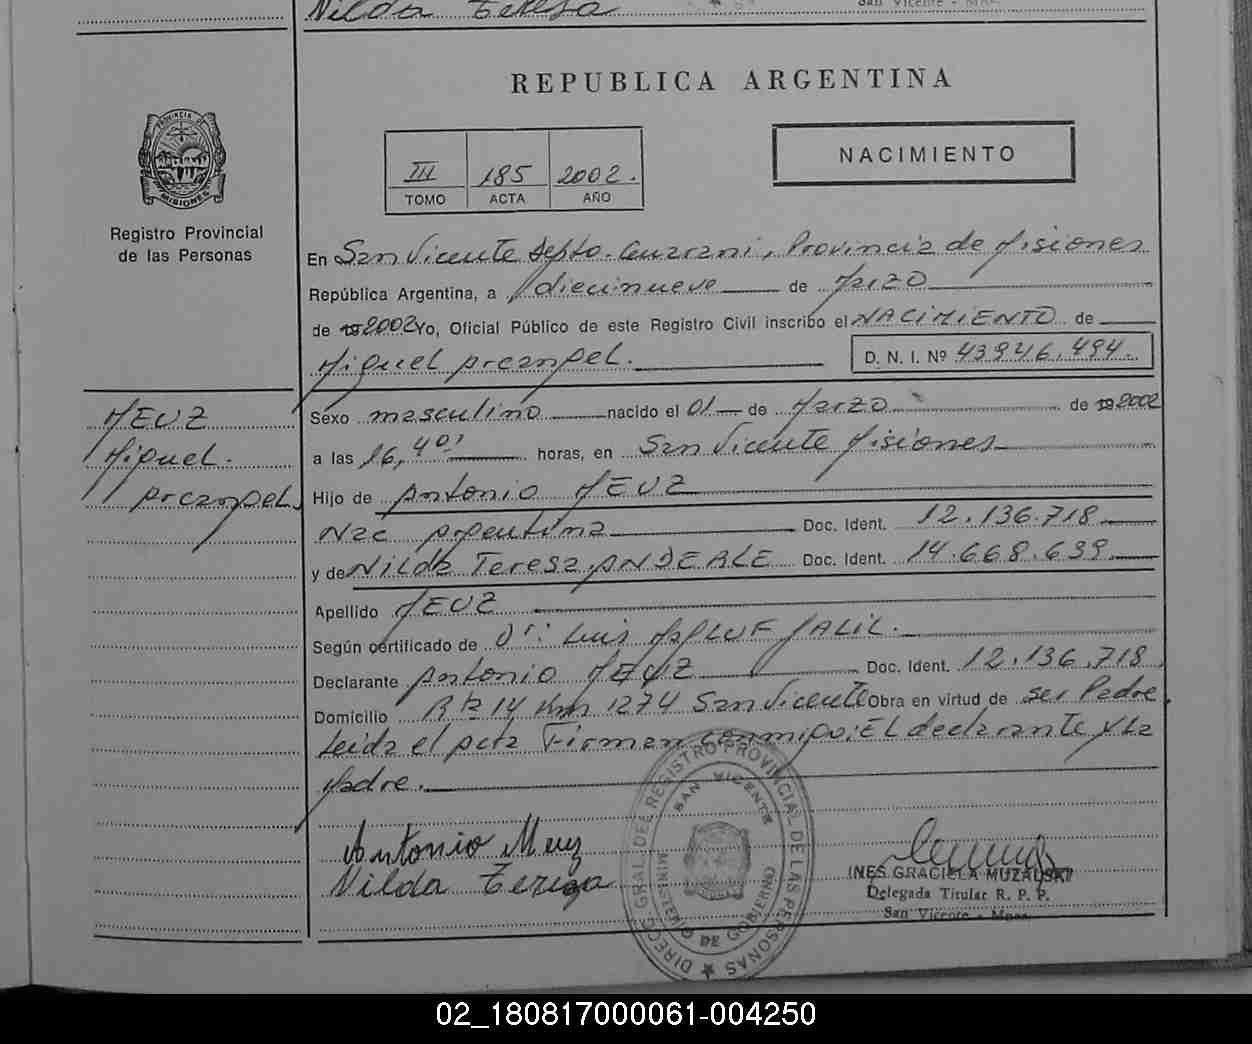 Nilda Teresa
San Vicente - Mnes.
REPUBLICA ARGENTINA
III 185 2002.
TOMO ACTA AÑO
NACIMIENTO
PROVINCIA DE MISIONES
Registro Provincial
de las Personas
En San Vicente Depto. Guarani, Provincia de Misiones
República Argentina, a diecinueve de Marzo
de 19 2002 Yo, Oficial Público de este Registro Civil inscribo el NACIMIENTO de
Miguel Arcangel. D. N. I. Nº 43946.494.
MEUZ
Miguel.
Arcangel.
Sexo masculino nacido el 01 de Marzo de 19 2002
a las 16,40' horas, en San Vicente Misiones
Hijo de Antonio MEUZ
Nac Argentina Doc. Ident. 12.136.718
y de Nilda Teresa ANDEALE Doc. Ident. 14.668.639
Apellido MEUZ
Según certificado de Dr: Luis JALIL.
Declarante Antonio MEUZ Doc. Ident. 12.136.718
Domicilio Rta 14 Km 1274 San Vicente Obra en virtud de ser Padre
Leida el acta Firman conmigo: El declarante y La
Madre.
Antonio Meuz
Nilda Tereza
DIREC. GRAL. DEL REGISTRO PROVINCIAL DE LAS PERSONAS
SAN VICENTE
MINISTERIO DE GOBIERNO
INES GRACIELA MUZALSKI
Delegada Titular R. P. P.
San Vicente - Mnes.
02_180817000061-004250